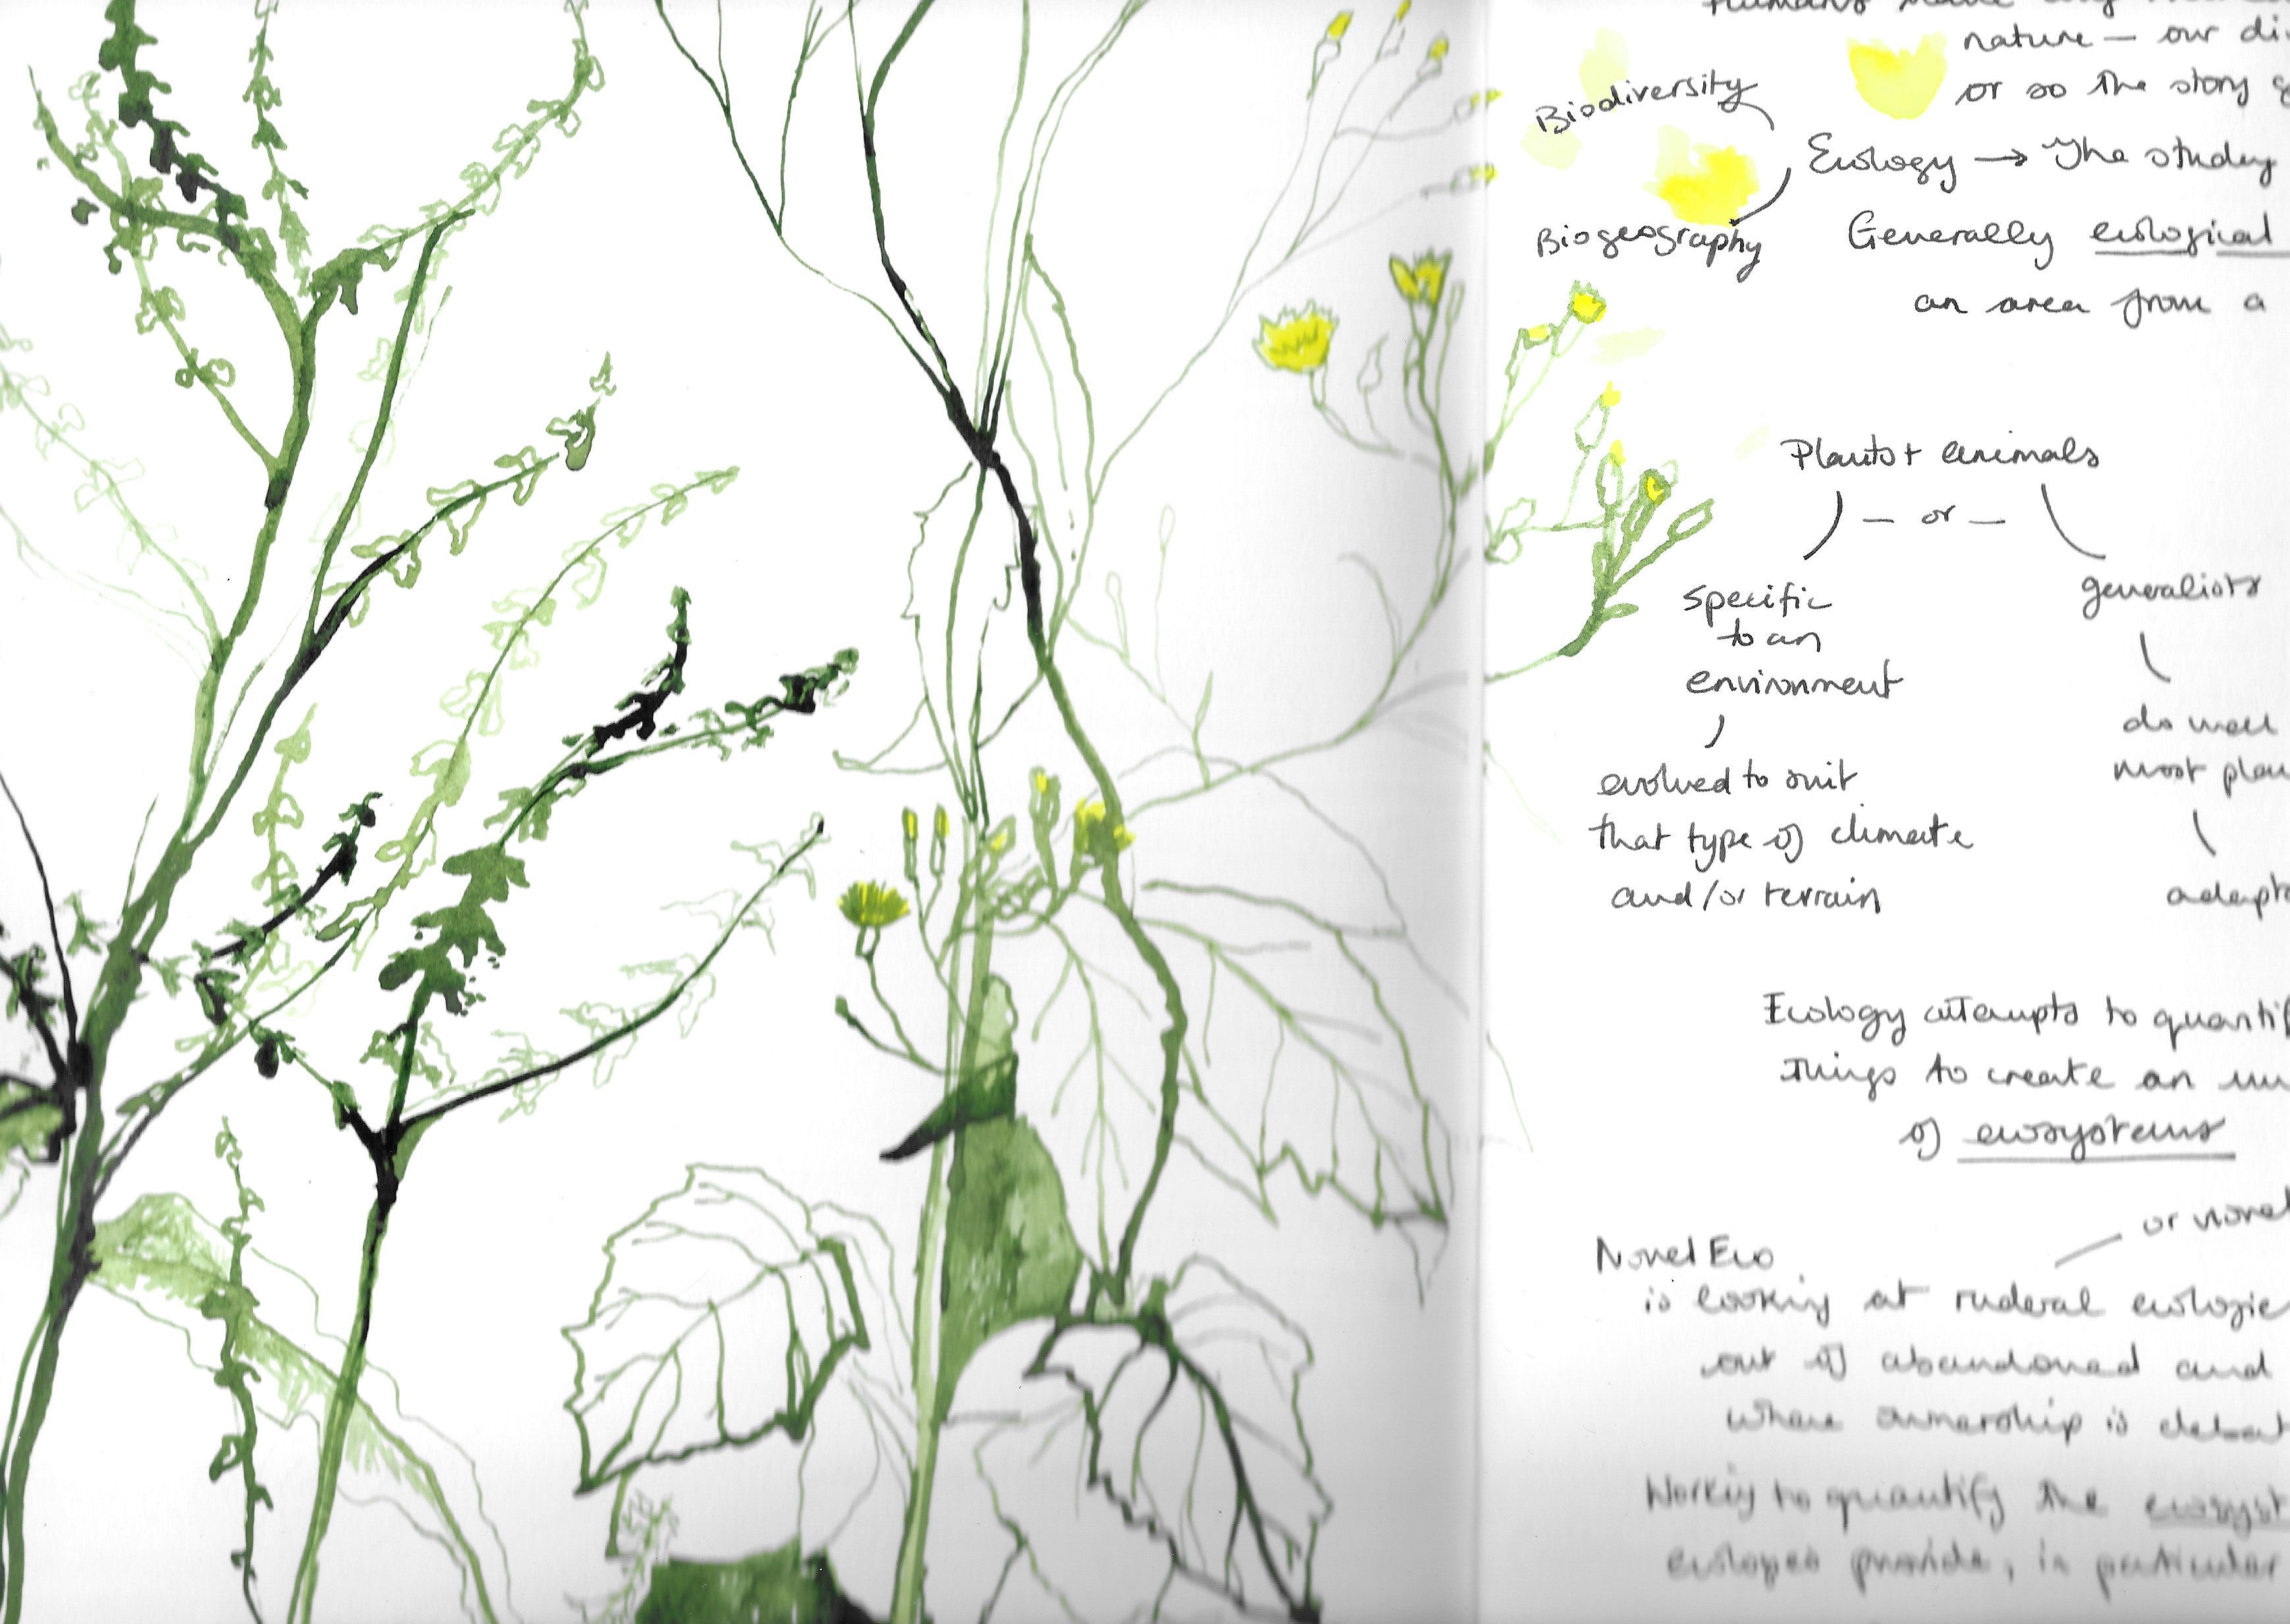 Humans make any
nature — our di
or so the story g
Biodiversity
Ecology → The study
Biogeography
Generally ecological
an area from a
Plants + animals
— or —
specific
to an
environment
generalists
evolved to suit
that type of climate
and/or terrain
do well
most pla
adapt
Ecology attempts to quantif
things to create an un
of ecosystems
or novel
Novel Eco
is looking at ruderal ecologie
out of abandoned and
where ownership is debat
Working to quantify the ecosyst
ecologies provide, in particular